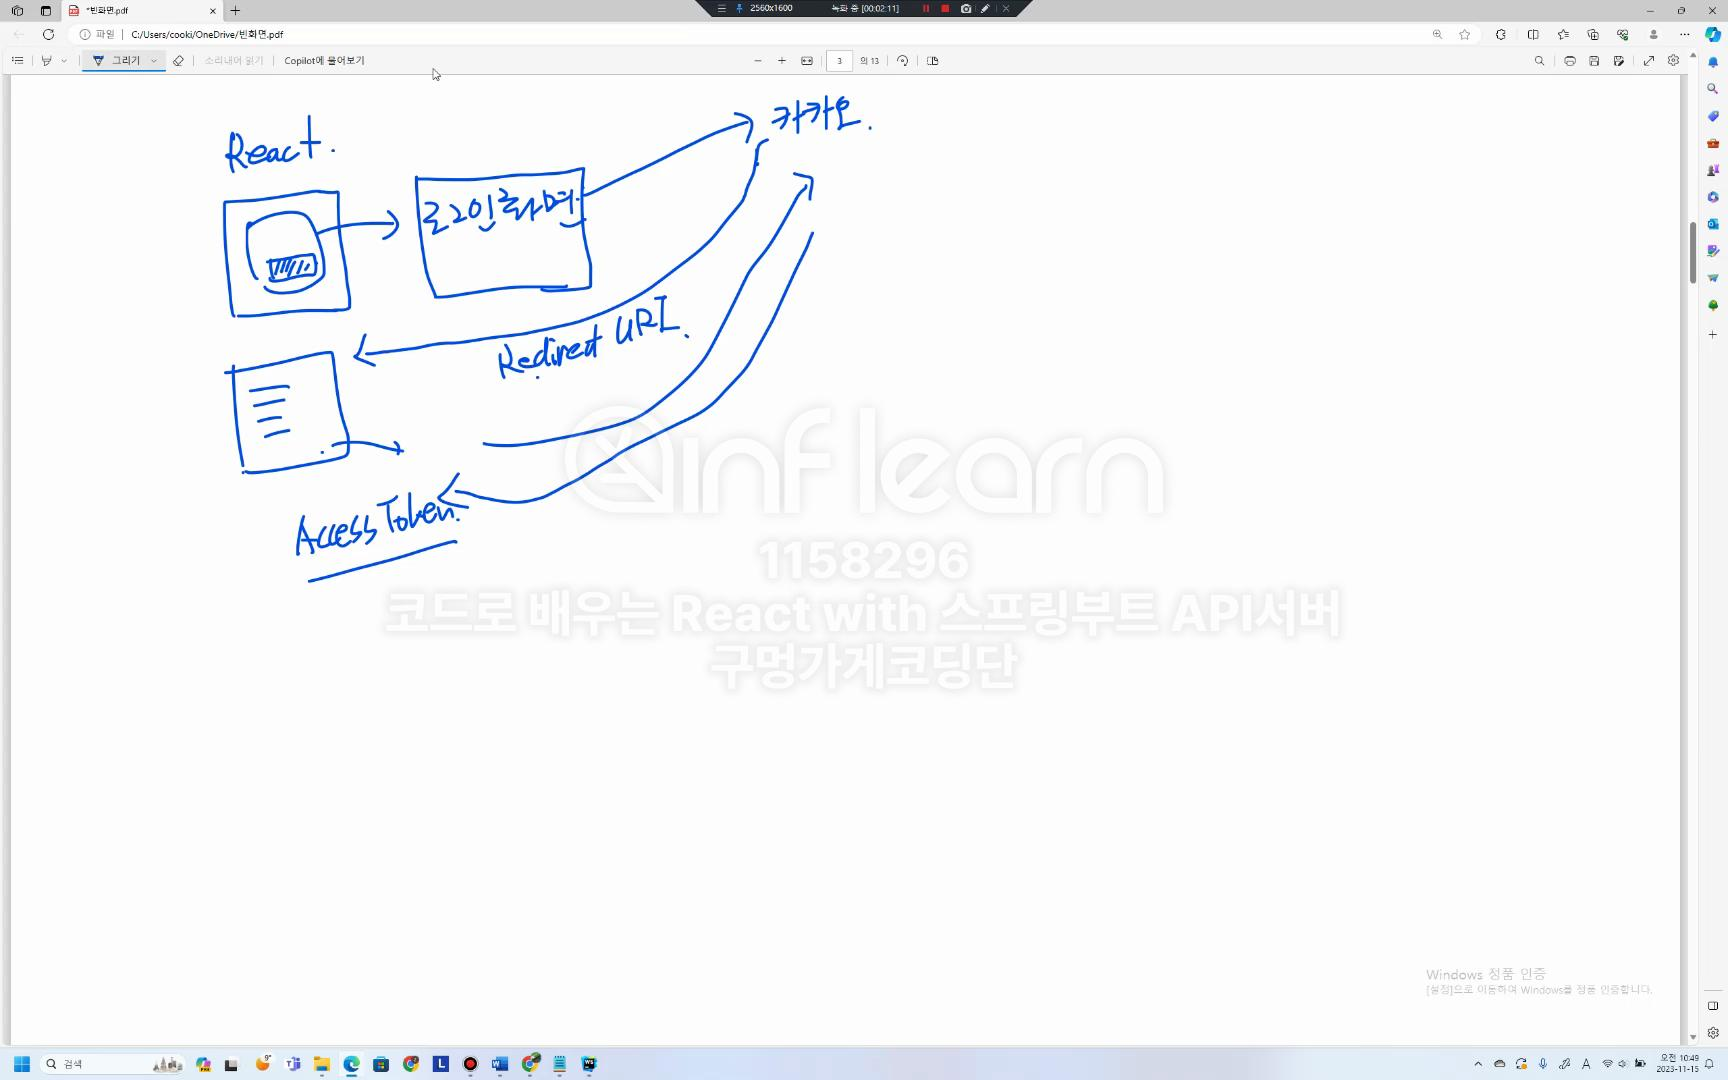 *빈화면.pdf
2560x1600
녹화 중 [00:02:11]
파일
C:/Users/cooki/OneDrive/빈화면.pdf
그리기
소리내어 읽기
Copilot에 물어보기
3
의 13
React.
카카오.
로그인화면.
Redirect URI.
Access Token.
inflearn
1158296
코드로 배우는 React with 스프링부트 API서버
구멍가게코딩단
Windows 정품 인증
[설정]으로 이동하여 Windows를 정품 인증합니다.
검색
9°
A
오전 10:49
2023-11-15